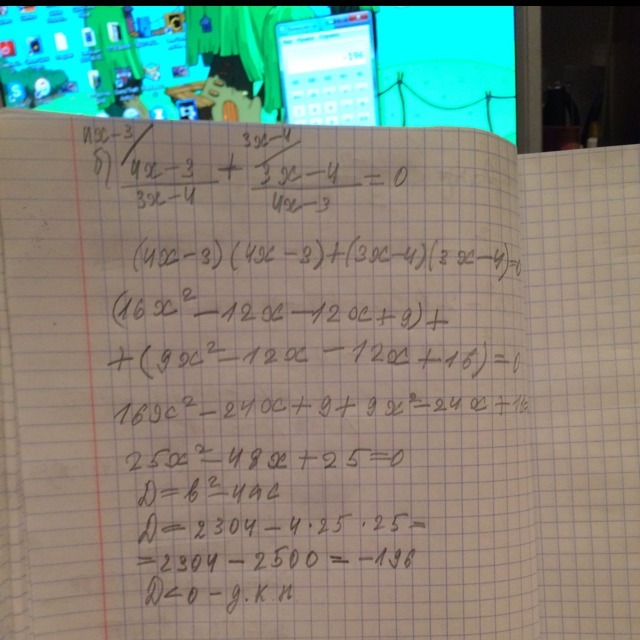 -196
4x-3/ 3x-4/
б) 4x-3/3x-4 + 3x-4/4x-3 = 0
(4x-3)(4x-3)+(3x-4)(3x-4)=0
(16x²-12x-12x+9)+
+(9x²-12x-12x+16)=0
16x²-24x+9+9x²-24x+16
25x²-48x+25=0
D=b²-4ac
D=2304-4·25·25=
=2304-2500=-196
D<0-д.к.н